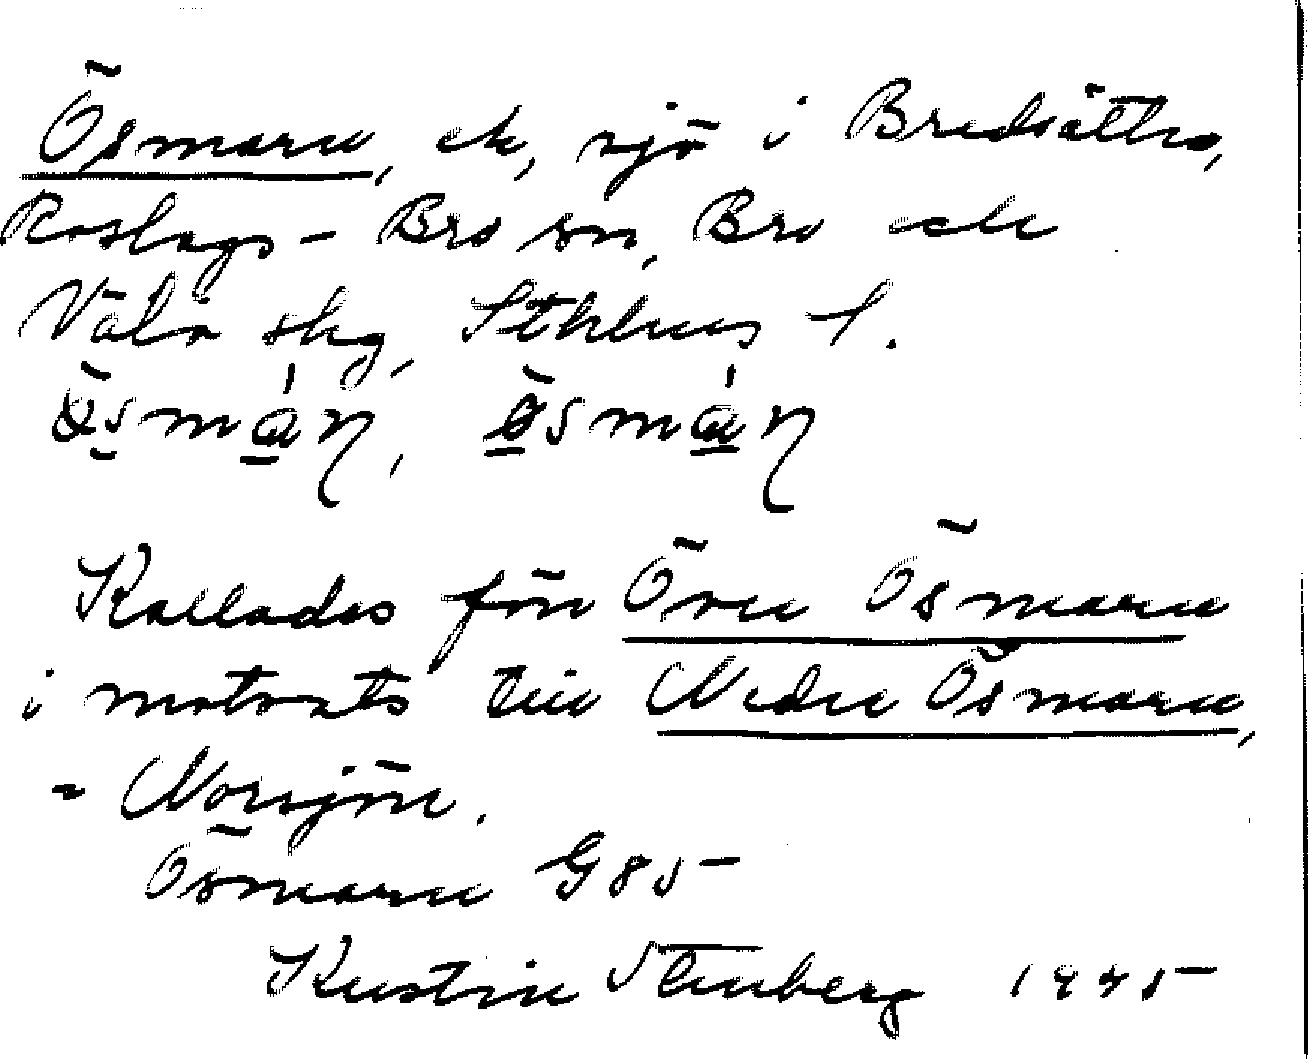 Ösmaren, ek, sjö i Bredsättra,
Roslags-Bro sn, Bro och
Väto skg, Sthlms l.
ösmáɳ, ösmáɳ
Kallades förr Övre Ösmaren
i motsats till Nedre Ösmaren,
= Norrsjön.
Ösmaren G 85
Kerstin Stenberg 1945